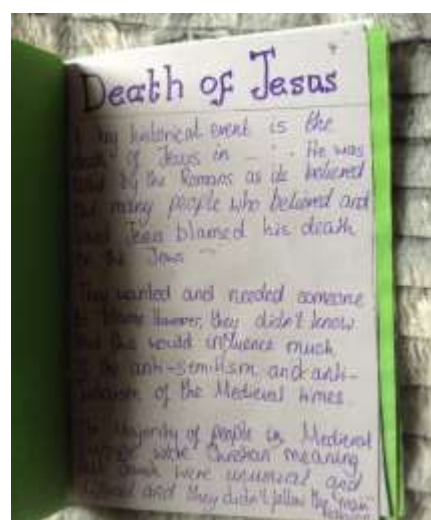 Death of Jesus
key historical event is the
death of Jesus in He was
by the Romans as its believed
many people who believed and
Jesus blamed his death
the Jews
They wanted and needed someone
to blame however, they didn't know
this would influence much
the anti-semitism and anti-
Judaism of the Medieval times
Majority of people in Medieval
were Christian meaning
were unusual and
and they didn't follow the "main